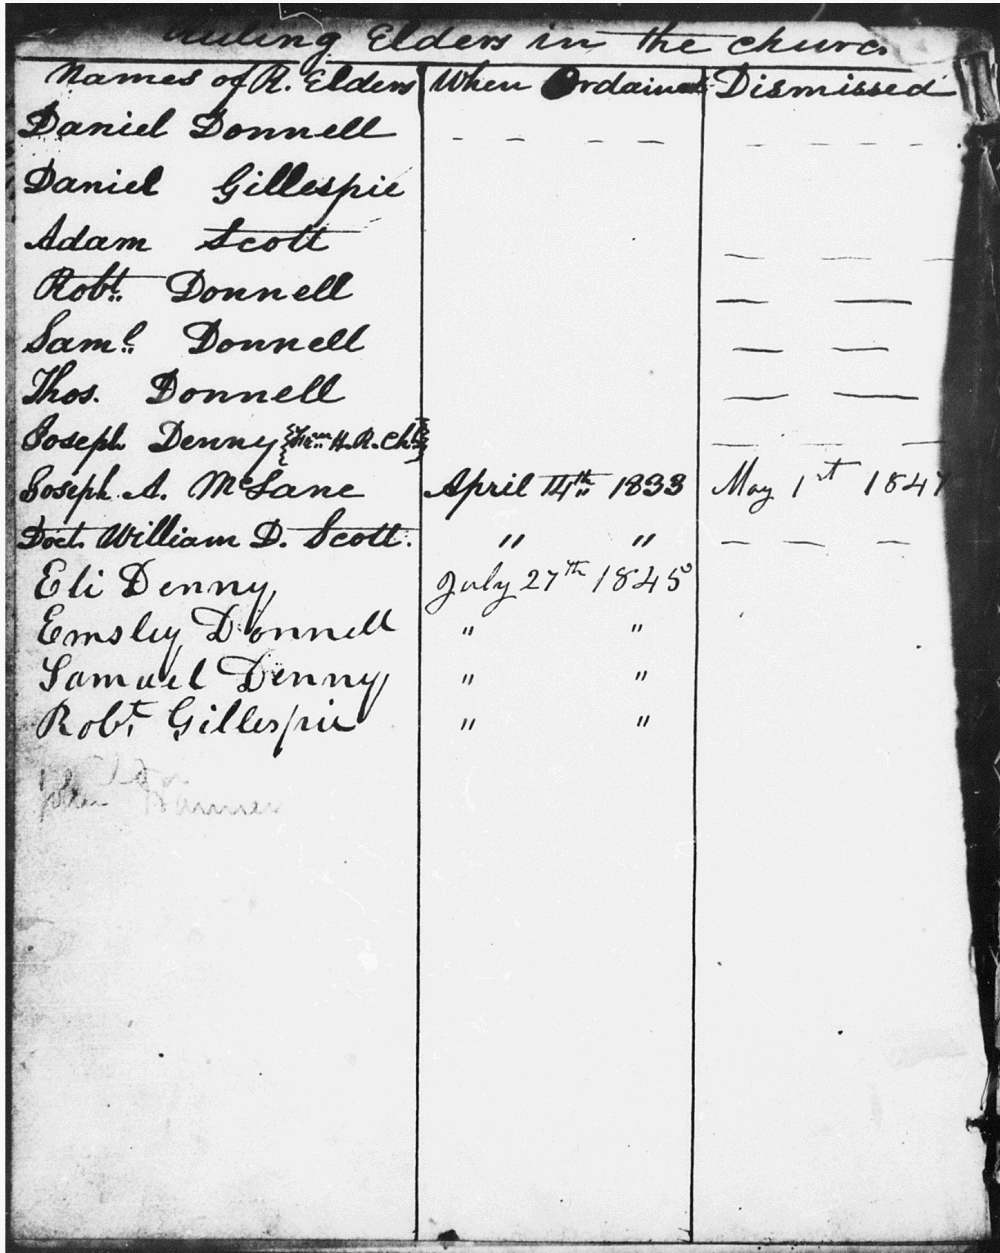 Ruling Elders in the Churc
Names of R. Elders When Ordained Dismissed
Daniel Donnell - - - - - - - -
Daniel Gillespie
Adam Scott — — —
Robt. Donnell — —
Saml. Donnell — —
Thos. Donnell — —
Joseph Denny {Frm. H. R. Ch.} — — —
Joseph A. McLane April 14th. 1833 May 1st 1847
Doct. William D. Scott. " " — — —
Eli Denny July 27th 1845
Emsley Donnell " "
Samuel Denny " "
Robt. Gillespie " "